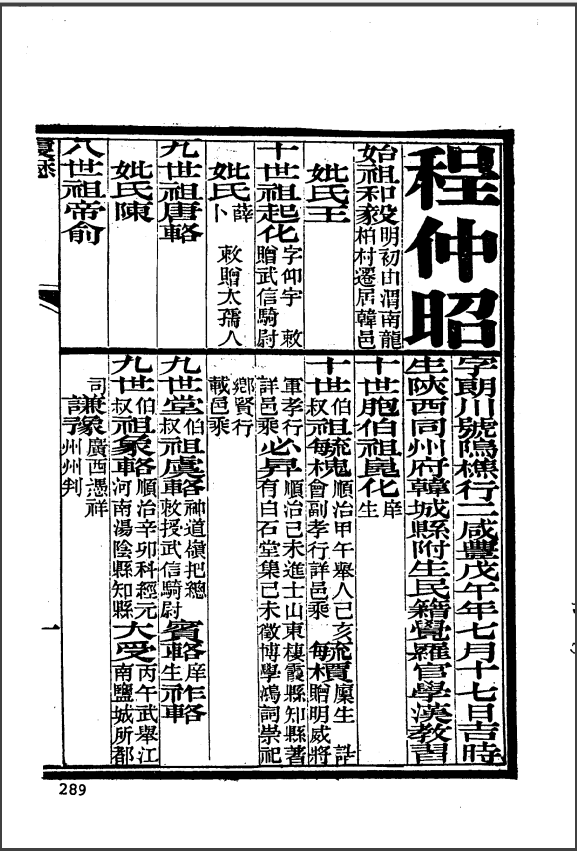 程仲昭
字朗川號隖樵行二咸豐戊午年七月十七日吉時
生陝西同州府韓城縣附生民籍覺羅官學漢教習
始祖和毅明初由渭南龍
柏村遷居韓邑
妣氏王
十世祖起化字仰宇 敕
贈武信騎尉
妣氏薛卜 敕贈太孺人
九世祖唐輅
妣氏陳
八世祖帝俞
十世胞伯祖崑化庠生
十世伯叔祖毓瑰順治甲午舉人己亥
會副孝行詳邑乘
毓賈廩生 誥
贈明威將
軍孝行
詳邑乘
必昇順治己未進士山東棲霞縣知縣著
有白石堂集己未徵博學鴻詞崇祀
鄉賢行
載邑乘
九世堂伯叔祖虞輅神道嶺把總
敕授武信騎尉
賓輅庠生
祚輅
九世伯叔祖象輅順治辛卯科經元
河南湯陰縣知縣
大受丙午武舉江
南鹽城所都
司
謙豫廣西憑祥
州州判
一
289